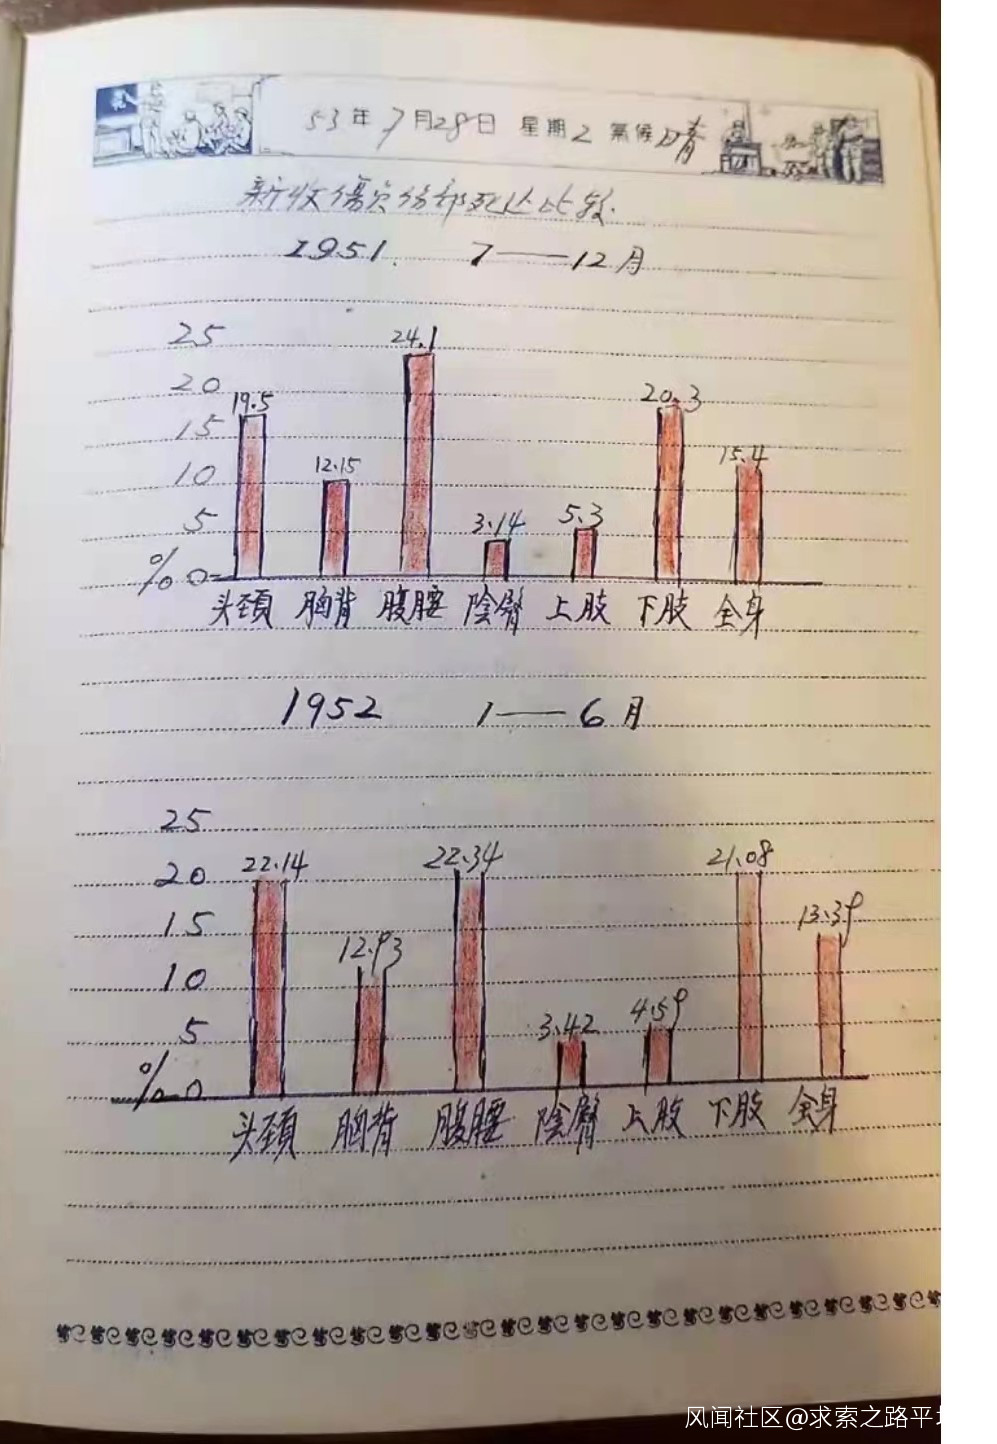 53年7月28日 星期2 氣候晴
新收傷员伤部死亡比较.
1951. 7——12月
25
20
15
10
5
% 0
19.5 12.15 24.1 3.14 5.3 20.3 15.4
头頚 胸背 腹腰 陰臀 上肢 下肢 全身
1952 1——6月
25
20
15
10
5
% 0
22.14 12.93 22.34 3.42 4.59 21.08 13.39
头頚 胸背 腹腰 陰臀 上肢 下肢 全身
风闻社区@求索之路平